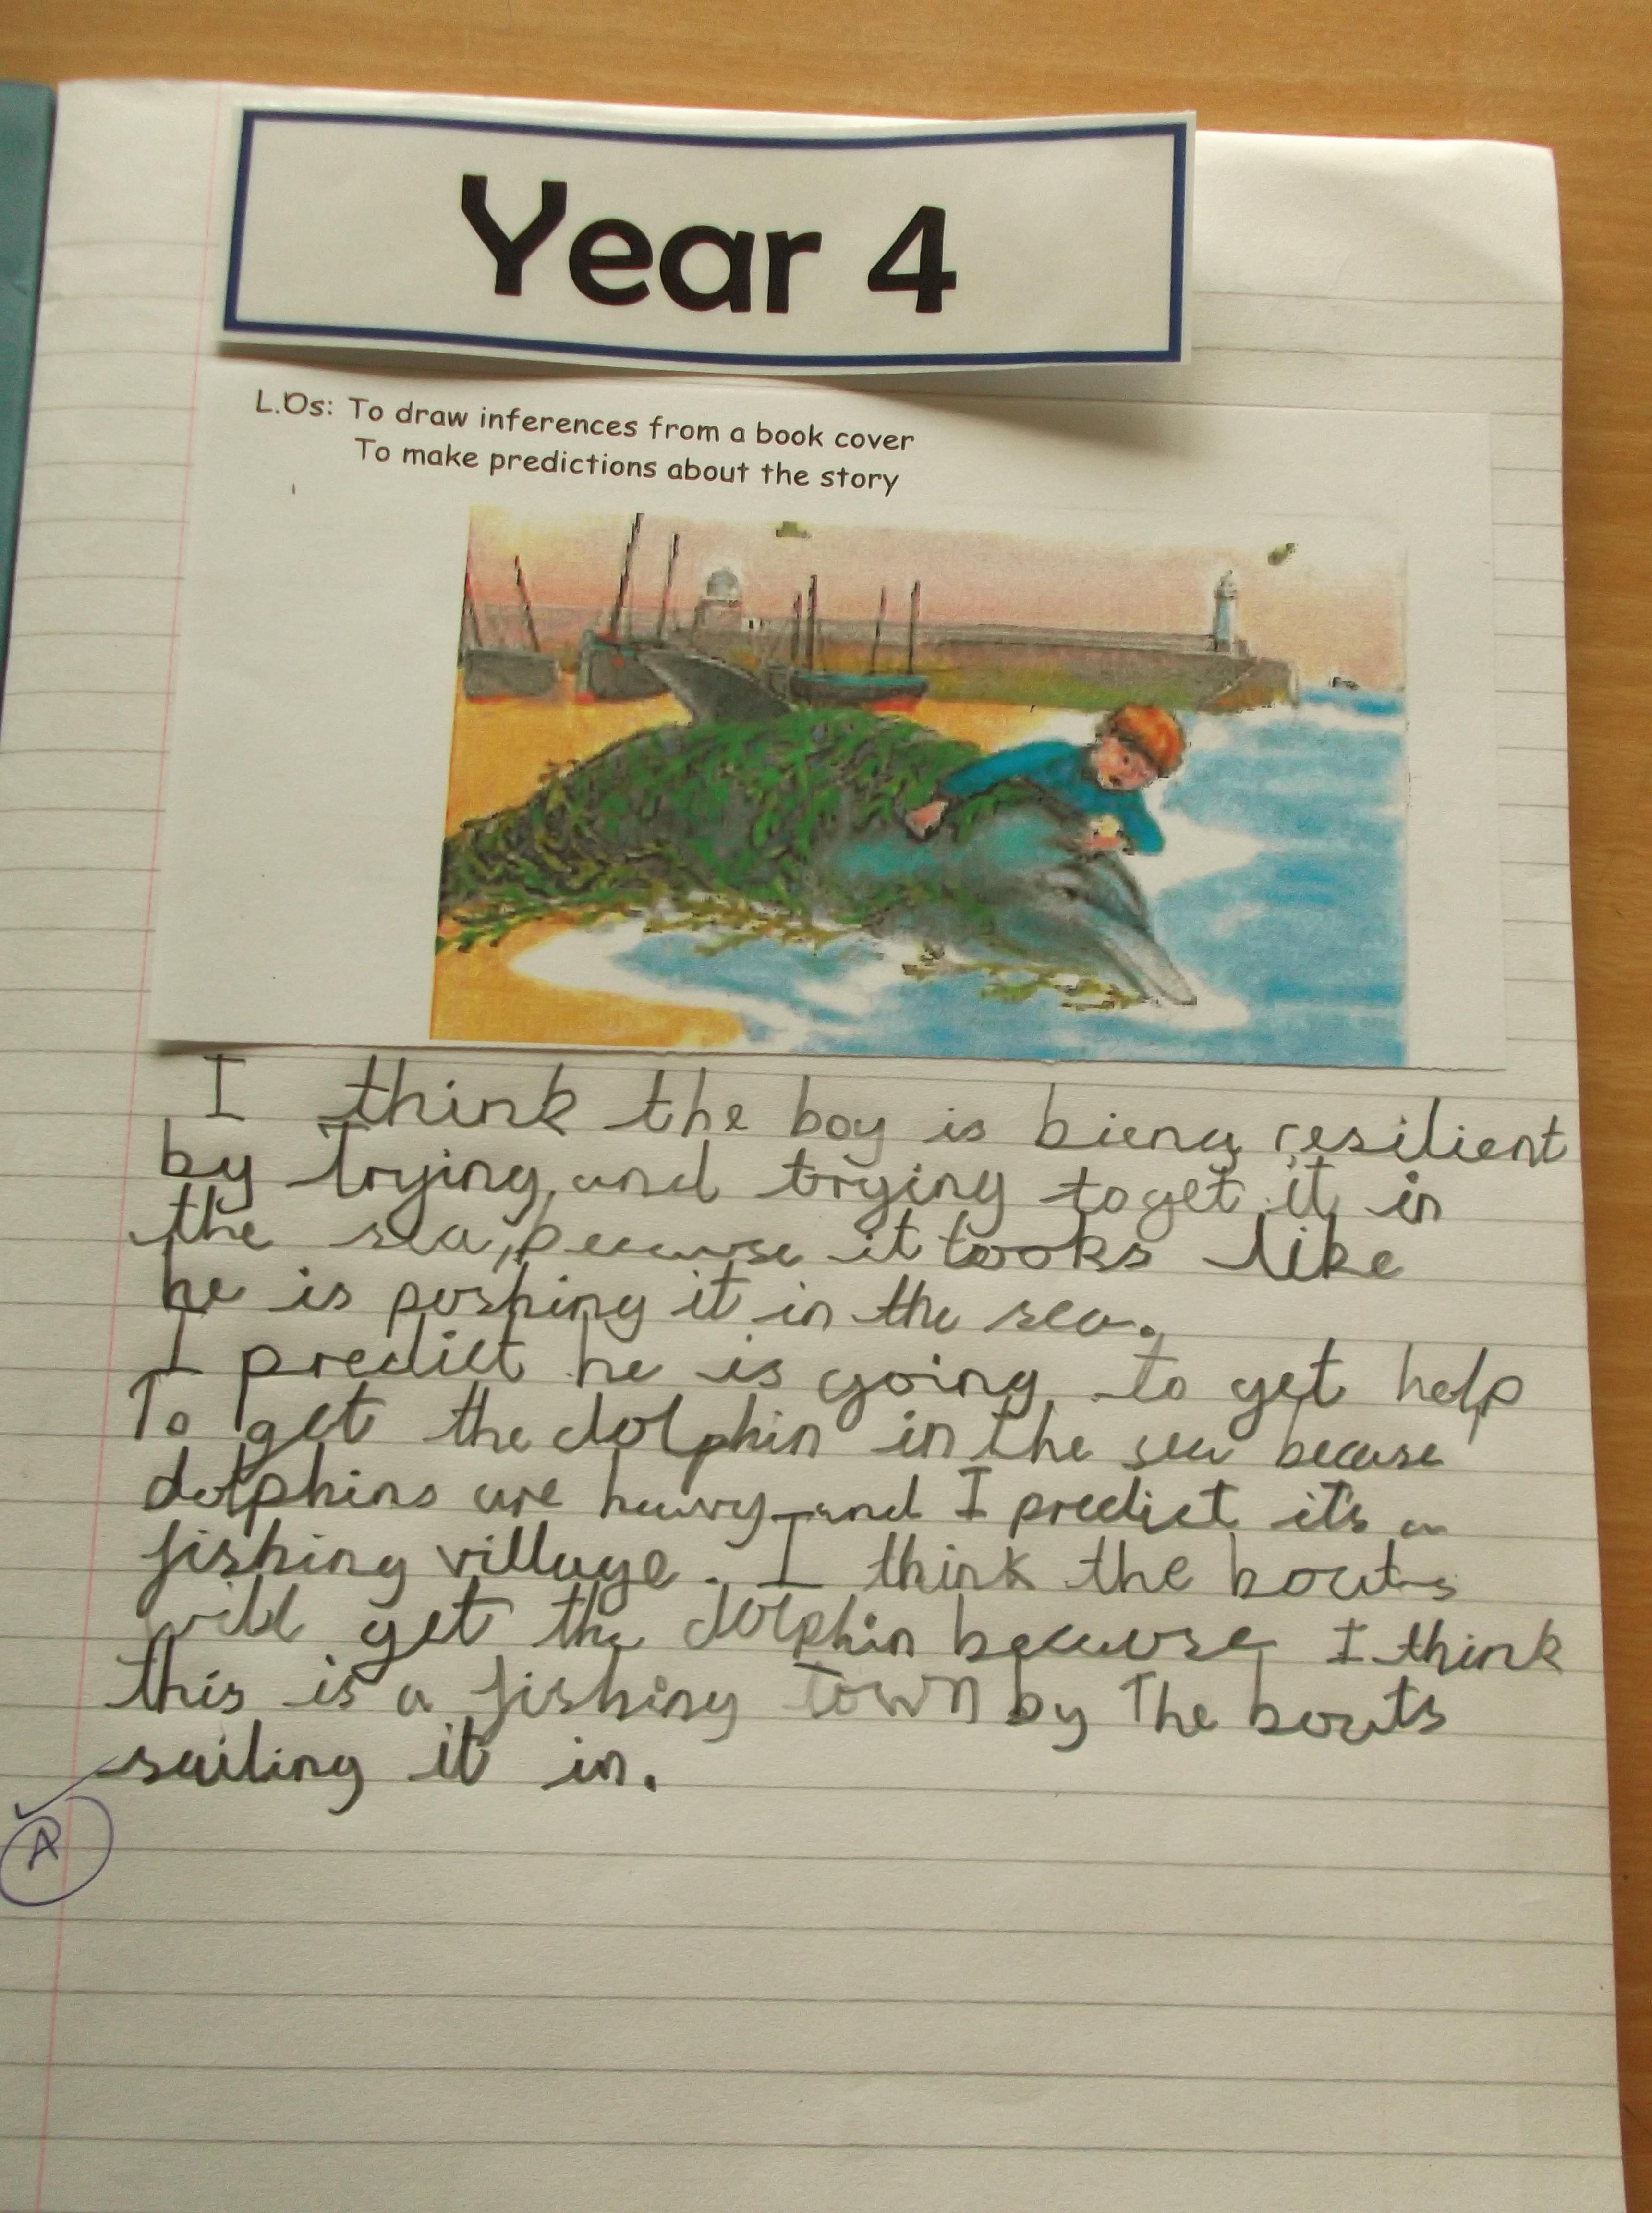 Year 4
L.Os: To draw inferences from a book cover
To make predictions about the story
I think the boy is bieng resilient
by Trying and trying to get it in
the sea, because it looks like
he is poshing it in the sea.
I predict he is going to get help
To get the dolphin in the sea becuse
dolphins are heavy and I predict it's a
fishing village. I think the boats
will get the dolphin because I think
this is a fishing town by The boats
sailing it in.
A